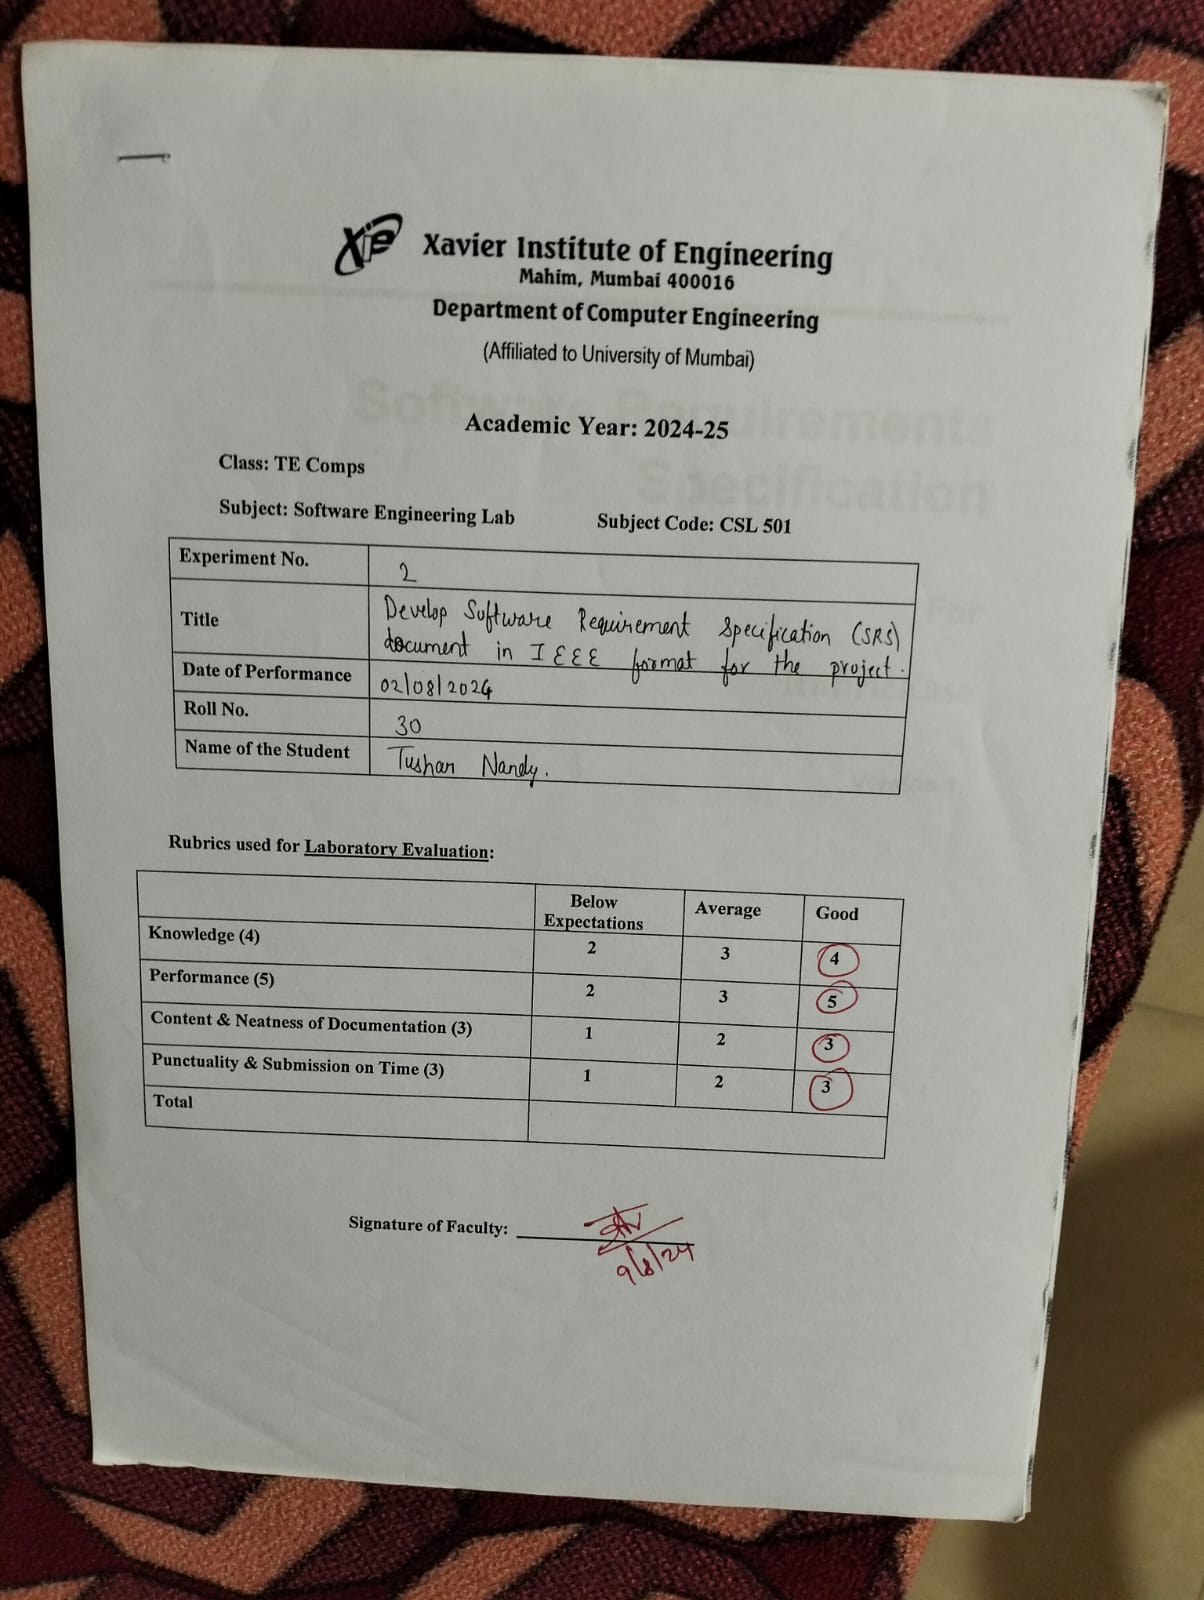 Xavier Institute of Engineering
Mahim, Mumbai 400016
Department of Computer Engineering
(Affiliated to University of Mumbai)
Academic Year: 2024-25
Class: TE Comps
Subject: Software Engineering Lab Subject Code: CSL 501
Experiment No. 2
Title Develop Software Requirement Specification (SRS)
document in IEEE format for the project.
Date of Performance 02/08/2024
Roll No. 30
Name of the Student Tushar Nandy.
Rubrics used for Laboratory Evaluation:
Below Expectations Average Good
Knowledge (4) 2 3 4
Performance (5) 2 3 5
Content & Neatness of Documentation (3) 1 2 3
Punctuality & Submission on Time (3) 1 2 3
Total
Signature of Faculty:
9/8/24
Software Requirements
Specification
For